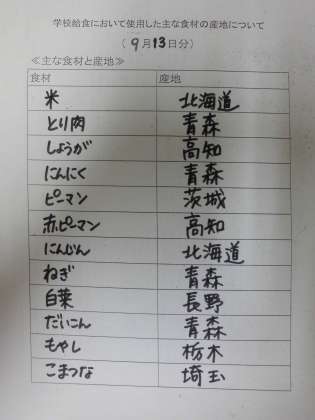 学校給食において使用した主な食材の産地について
(9月13日分)
≪主な食材と産地≫
食材 産地
米 北海道
とり肉 青森
しょうが 高知
にんにく 青森
ピーマン 茨城
赤ピーマン 高知
にんじん 北海道
ねぎ 青森
白菜 長野
だいこん 青森
もやし 栃木
こまつな 埼玉